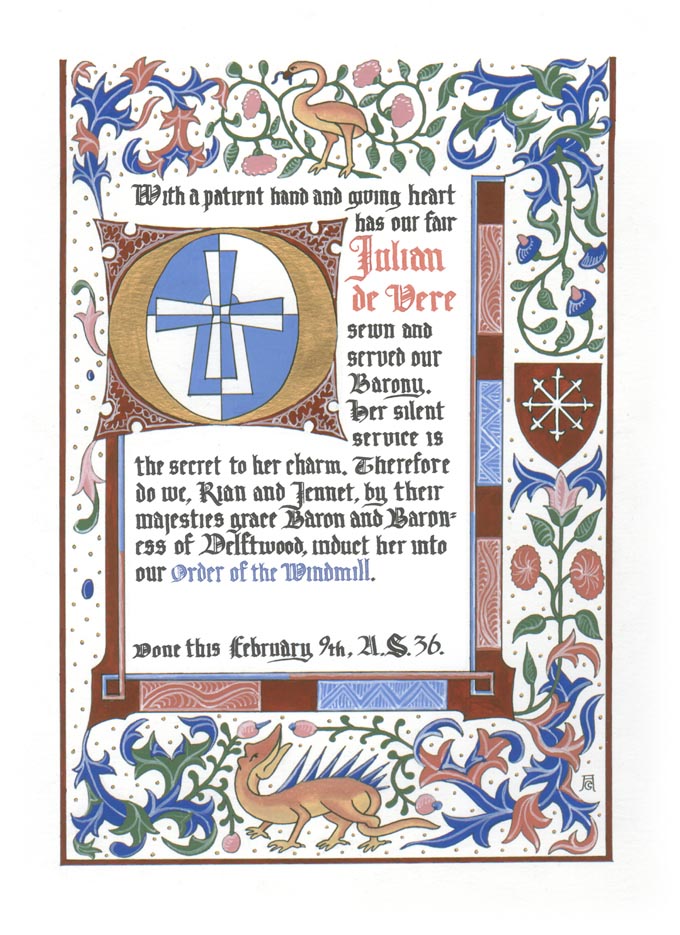 With a patient hand and giving heart
has our fair
Julian
de Vere
sewn and
served our
Barony.
Her silent
service is
the secret to her charm. Therefore
do we, Rian and Jennet, by their
majesties grace Baron and Baron=
ess of Delftwood, induct her into
our Order of the Windmill.
Done this February 9th, A.S. 36.